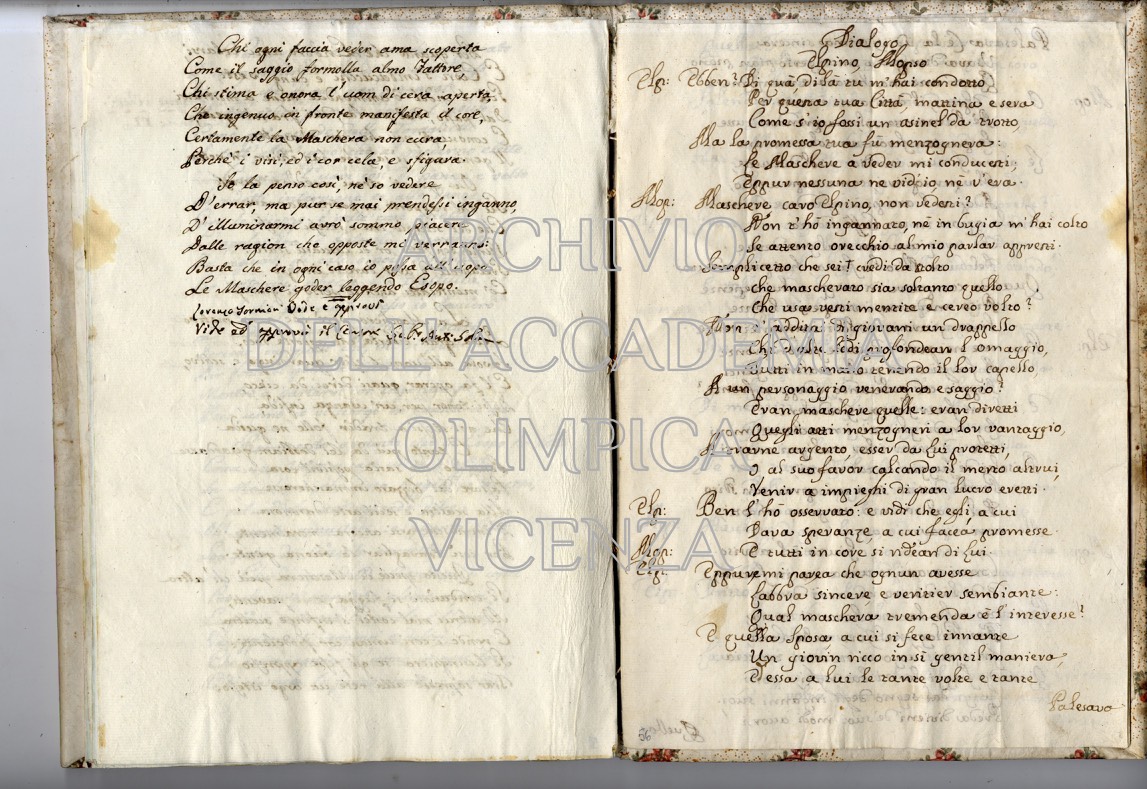 Chi ogni faccia veder ama scoperta
Come il saggio formolla almo Fattore
Chi stima e onora l'uom di cera aperta,
Che ingenuo in fronte manifesta il core,
Certamente la Maschera non cura,
Perchè i visi, ed i cor cela, e sfigura.
Io la penso così, nè so vedere
D'errar, ma pur se mai prendessi inganno,
D'illuminarmi avrò sommo piacere
Dalle ragion che opposte mi verranno:
Basta che in ogni caso io possa all'uopo
Le Maschere goder leggendo Esopo.
Lorenzo Vide e approvò
Vide ed approvò il
Dialogo
Elpino, Mopso
Elp: Ebben? Di quà di là tu m'hai condotto
Per questa tua Città mattina e sera
Come s'io fossi un asinel da trotto,
Ma la promessa tua fù menzognera:
Le Maschere a veder mi conducesti;
Eppur nessuna ne vid'io, nè v'era.
Mop: Maschere caro Elpino, non vedesti?
Non t'hò ingannato, nè in bugia m'hai colto
Se attento orecchio al mio parlar appresti.
Semplicetto che sei! credi da stolto
Che mascherato sia soltanto quello
Che usa vesti mentite e cereo volto?
Non t'additai di giovani un drappello
Chi profondean l'omaggio,
Tutti in mano tenendo il lor capello,
A un personaggio venerando e saggio?
Eran maschere quelle: eran diretti
Quegli atti menzogneri a lor vantaggio,
A trarne argento, esser da lui protetti,
O al suo favor calcando il merto altrui,
Venir a impieghi di gran lucro eretti.
Elp: Ben l'hò osservato: e vidi che egli, a cui
Dava speranze, a cui facea promesse.
Mop: E tutti in core si ridean di lui.
Elp: Eppur mi parea che ognun avesse
Labbra sincere e veritier sembiante:
Qual maschera tremenda è l'interesse?
E quella sposa a cui si fece innante
Un giovin ricco in si gentil maniera,
Dessa a lui le tante volte e tante
Palesava
ARCHIVIO
DELL'ACCADEMIA
OLIMPICA
VICENZA